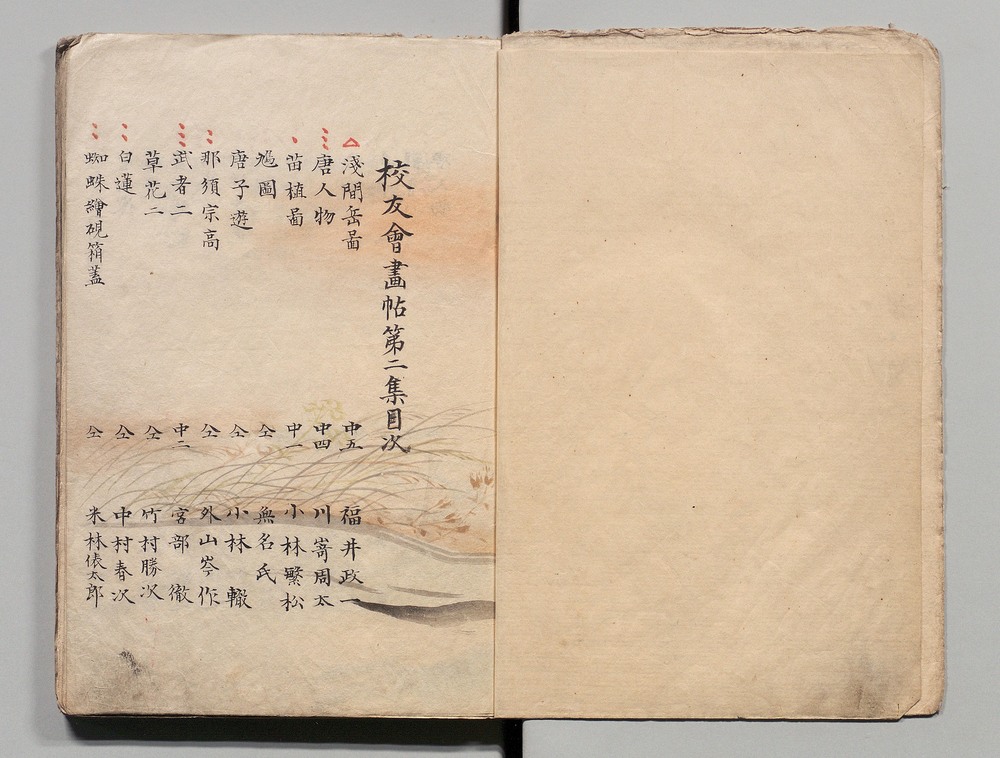 校友會畫帖第二集目次
淺間岳啚 中五 福井政一
唐人物 中四 川嵜周太
苗植啚 中一 小林繁松
鳩圖 仝 無名氏
唐子遊 仝 小林轍
那須宗高 仝 外山岑作
武者二 中二 宮部徹
草花二 仝 竹村勝次
白蓮 仝 中村春次
蜘蛛繪硯箱蓋 仝 米林俵太郎